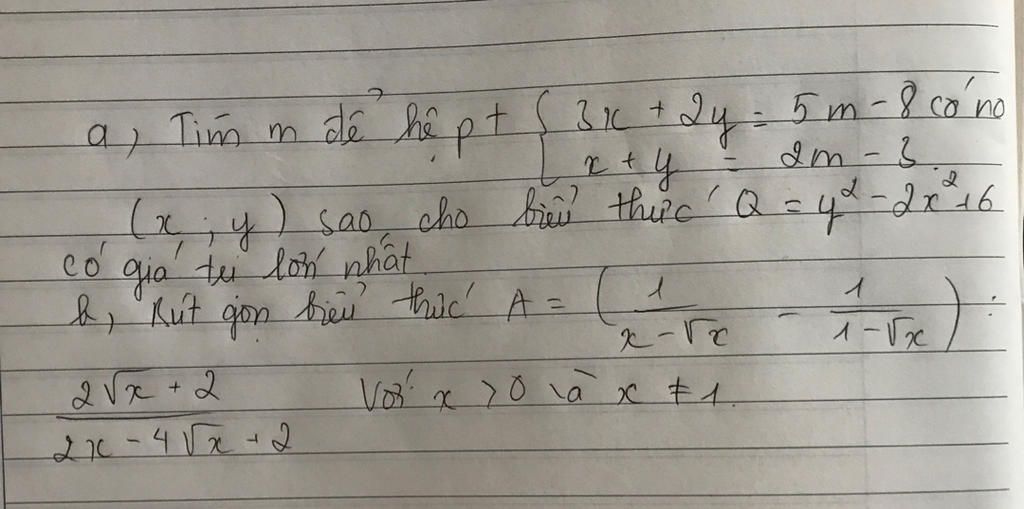 a, Tìm m để hệ pt { 3x + 2y = 5m - 8 có no
x + y = 2m - 3.
(x ; y) sao cho biểu thức Q = y² - 2x² + 6
có giá trị lớn nhất.
b, Rút gọn biểu thức A = ( 1/(x - √x) - 1/(1 - √x) ) :
(2√x + 2)/(2x - 4√x + 2) Với x > 0 và x ≠ 1.